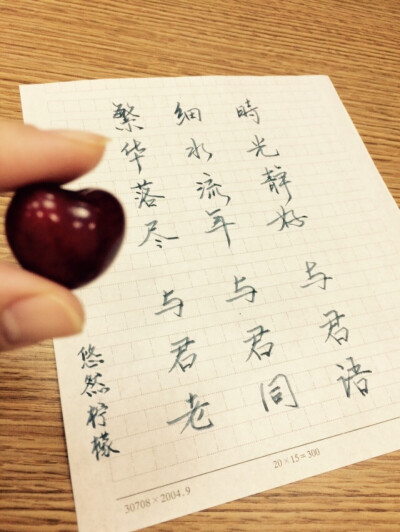 時光靜好
与君语
细水流年
与君同
繁华落尽
与君老
悠然柠檬
30708×2004.9
20×15=300